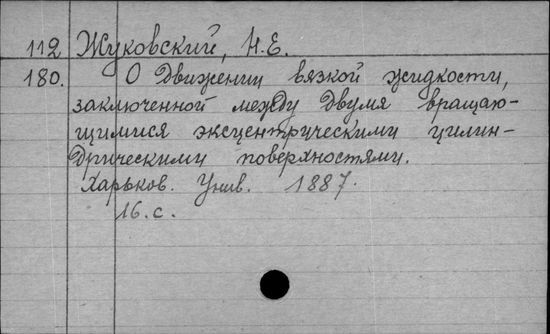 112 Жуковский, Н.Е.
180. О движении вязкой жидкости,
заключенной между двумя вращаю-
щимися эксцентрическими цилин-
дрическими поверхностями.
Харьков. Унив. 1887.
16. с.